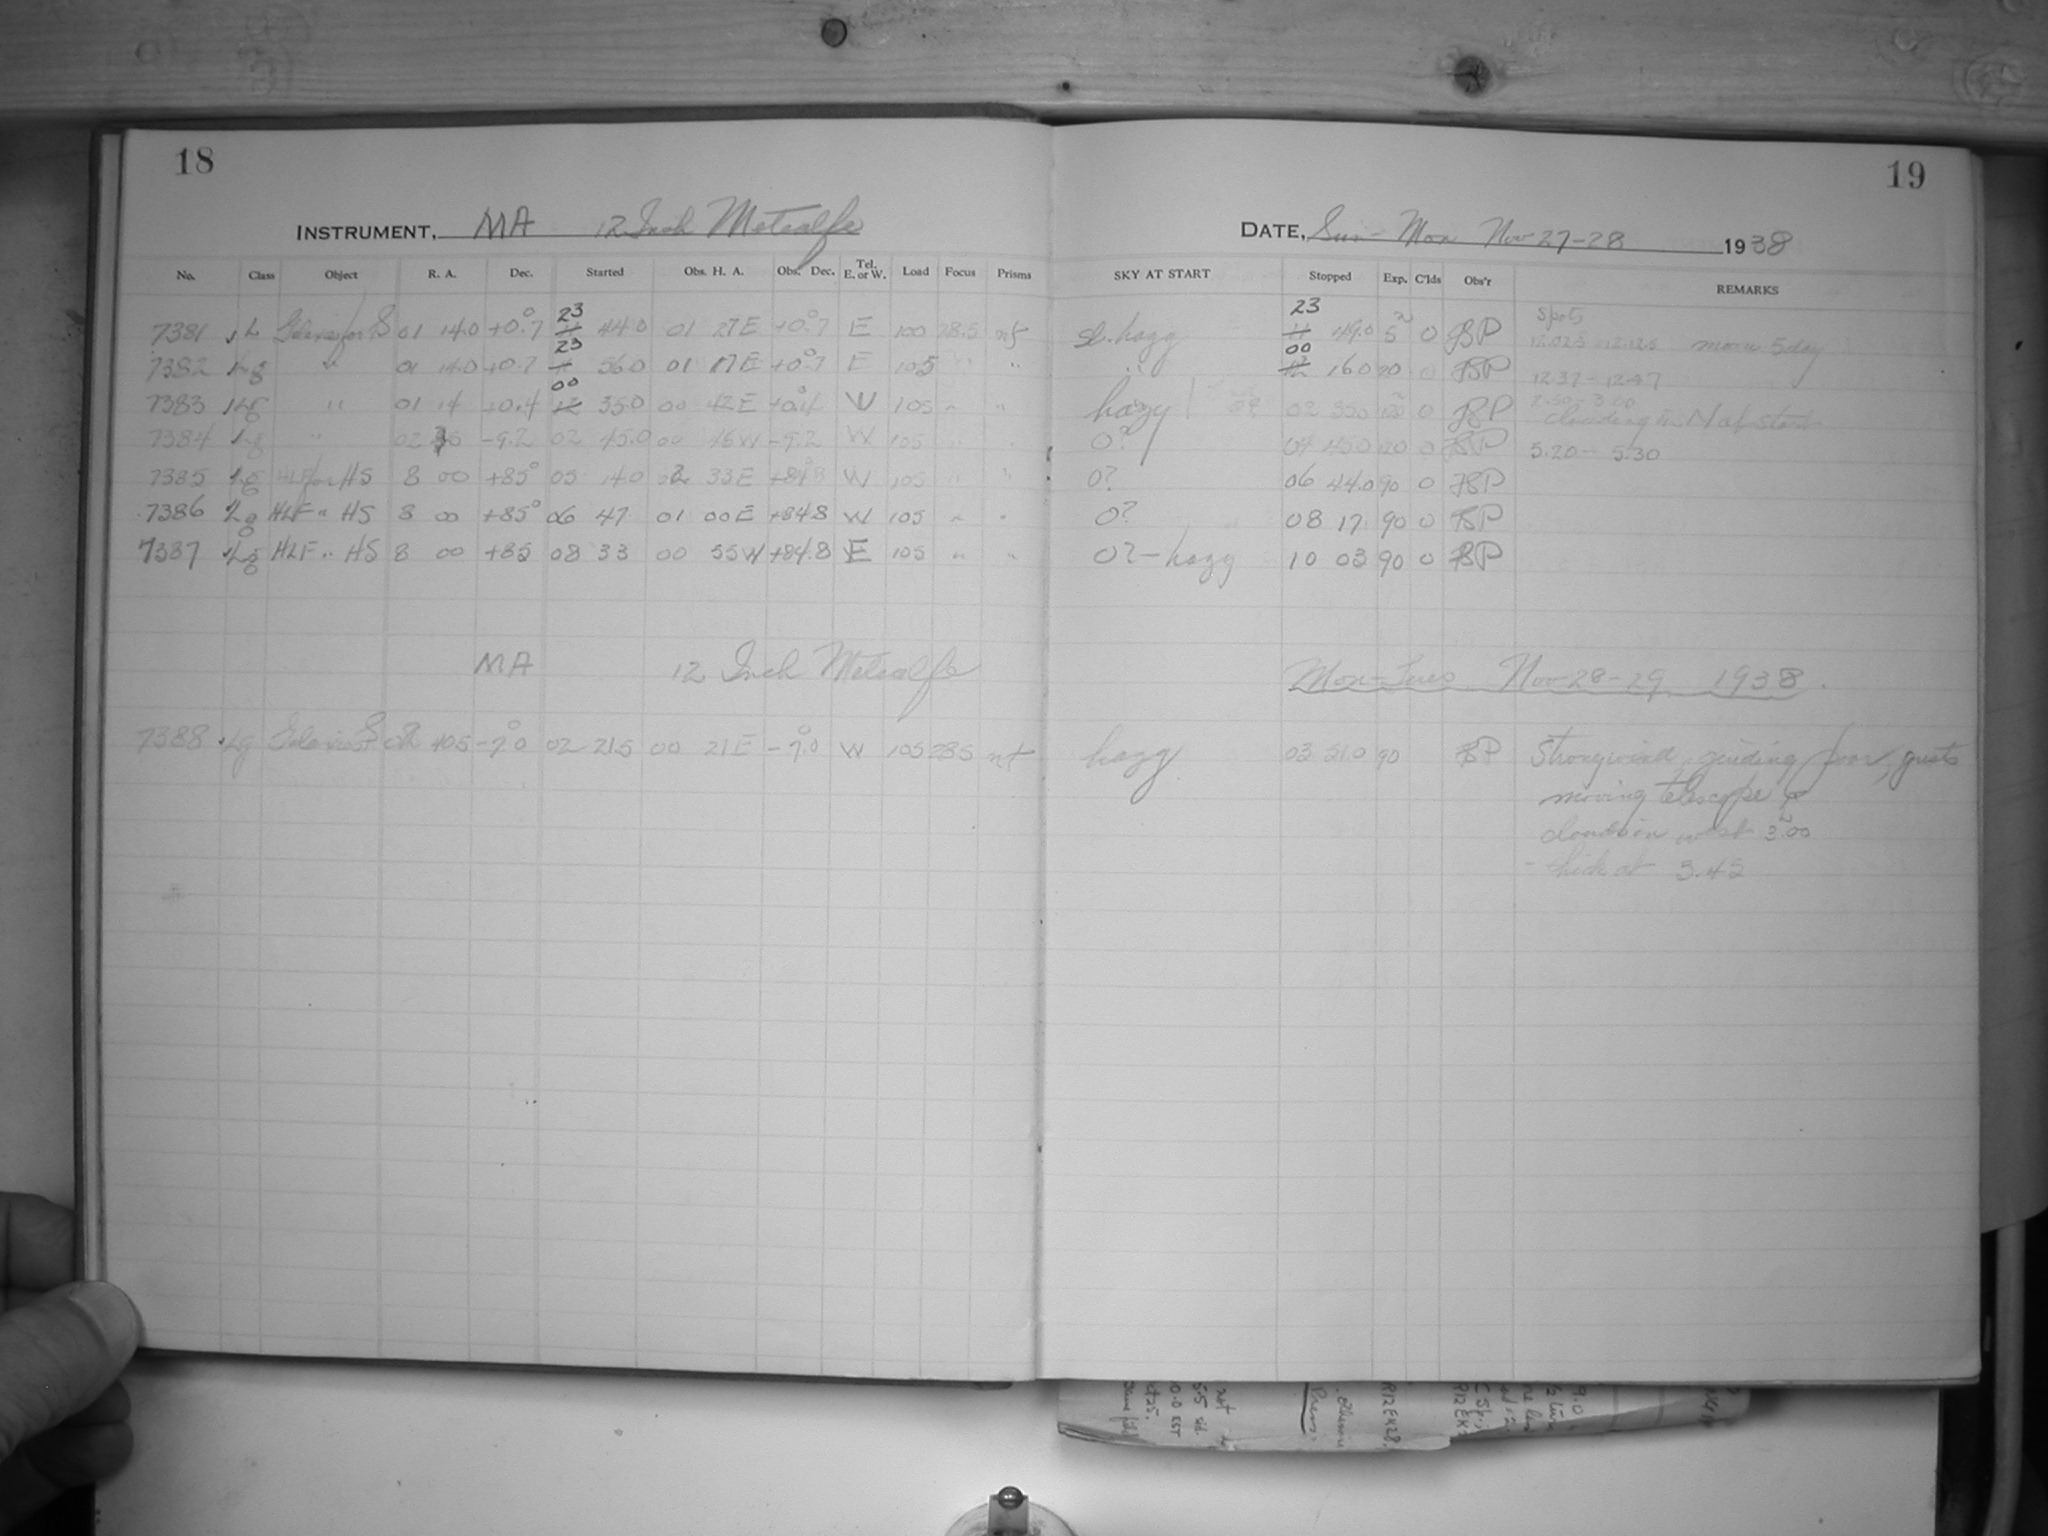 18
INSTRUMENT, MA 12 Inch Metcalfe
No. Class Object R. A. Dec. Started Obs. H. A. Obs. Dec. Tel. E. or W. Load Focus Prisms
23
7381 L for S 01 14.0 +0.°7 11 44.0 01 27 E +0.°7 E 100 28.5
23
7382 Lg " 01 14.0 +0.7 11 56.0 01 17 E +0.°7 E 105 " "
00
7383 Lg " 01 14 +0.4 12 35.0 00 42 E +0.4 W 105 " "
7384 Lg " 02 -9.2 02 45.0 00 46 W -9.2 W 105 " "
7385 Lg HLF for HS 8 00 +85° 05 14.0 02 33 E +84.8 W 105 " "
7386 Lg HLF " HS 8 00 +85° 06 47 01 00 E +84.8 W 105 " "
7387 Lg HLF " HS 8 00 +85 08 33 00 55 W +84.8 E 105 " "
MA 12 Inch Metcalfe
7388 Lg S -7.°0 02 21.5 00 21 E -7.°0 W 105 28.5
19
DATE, Sun - Mon Nov 27-28 1938
SKY AT START Stopped Exp. C'lds Obs'r REMARKS
23 spots
sl. hazy 11 49.0 5 0 BP 12.02.5 - 12.12.5 moon 5 day
00
" 12 16.0 20 0 BP 12 37 - 12.47
hazy 02 35.0 120 0 BP 2.50 - 3.00 clouding in N at start
0? 04 45.0 120 0 BP 5.20 - 5.30
0? 06 44.0 90 0 BP
0? 08 17 90 0 BP
0? - hazy 10 03 90 0 BP
Mon - Tues Nov 28-29 1938.
hazy 03 51.0 90 BP Strong wind, guiding poor, gusts
moving telescope
clouds in west 3.00
- thick at 3.45